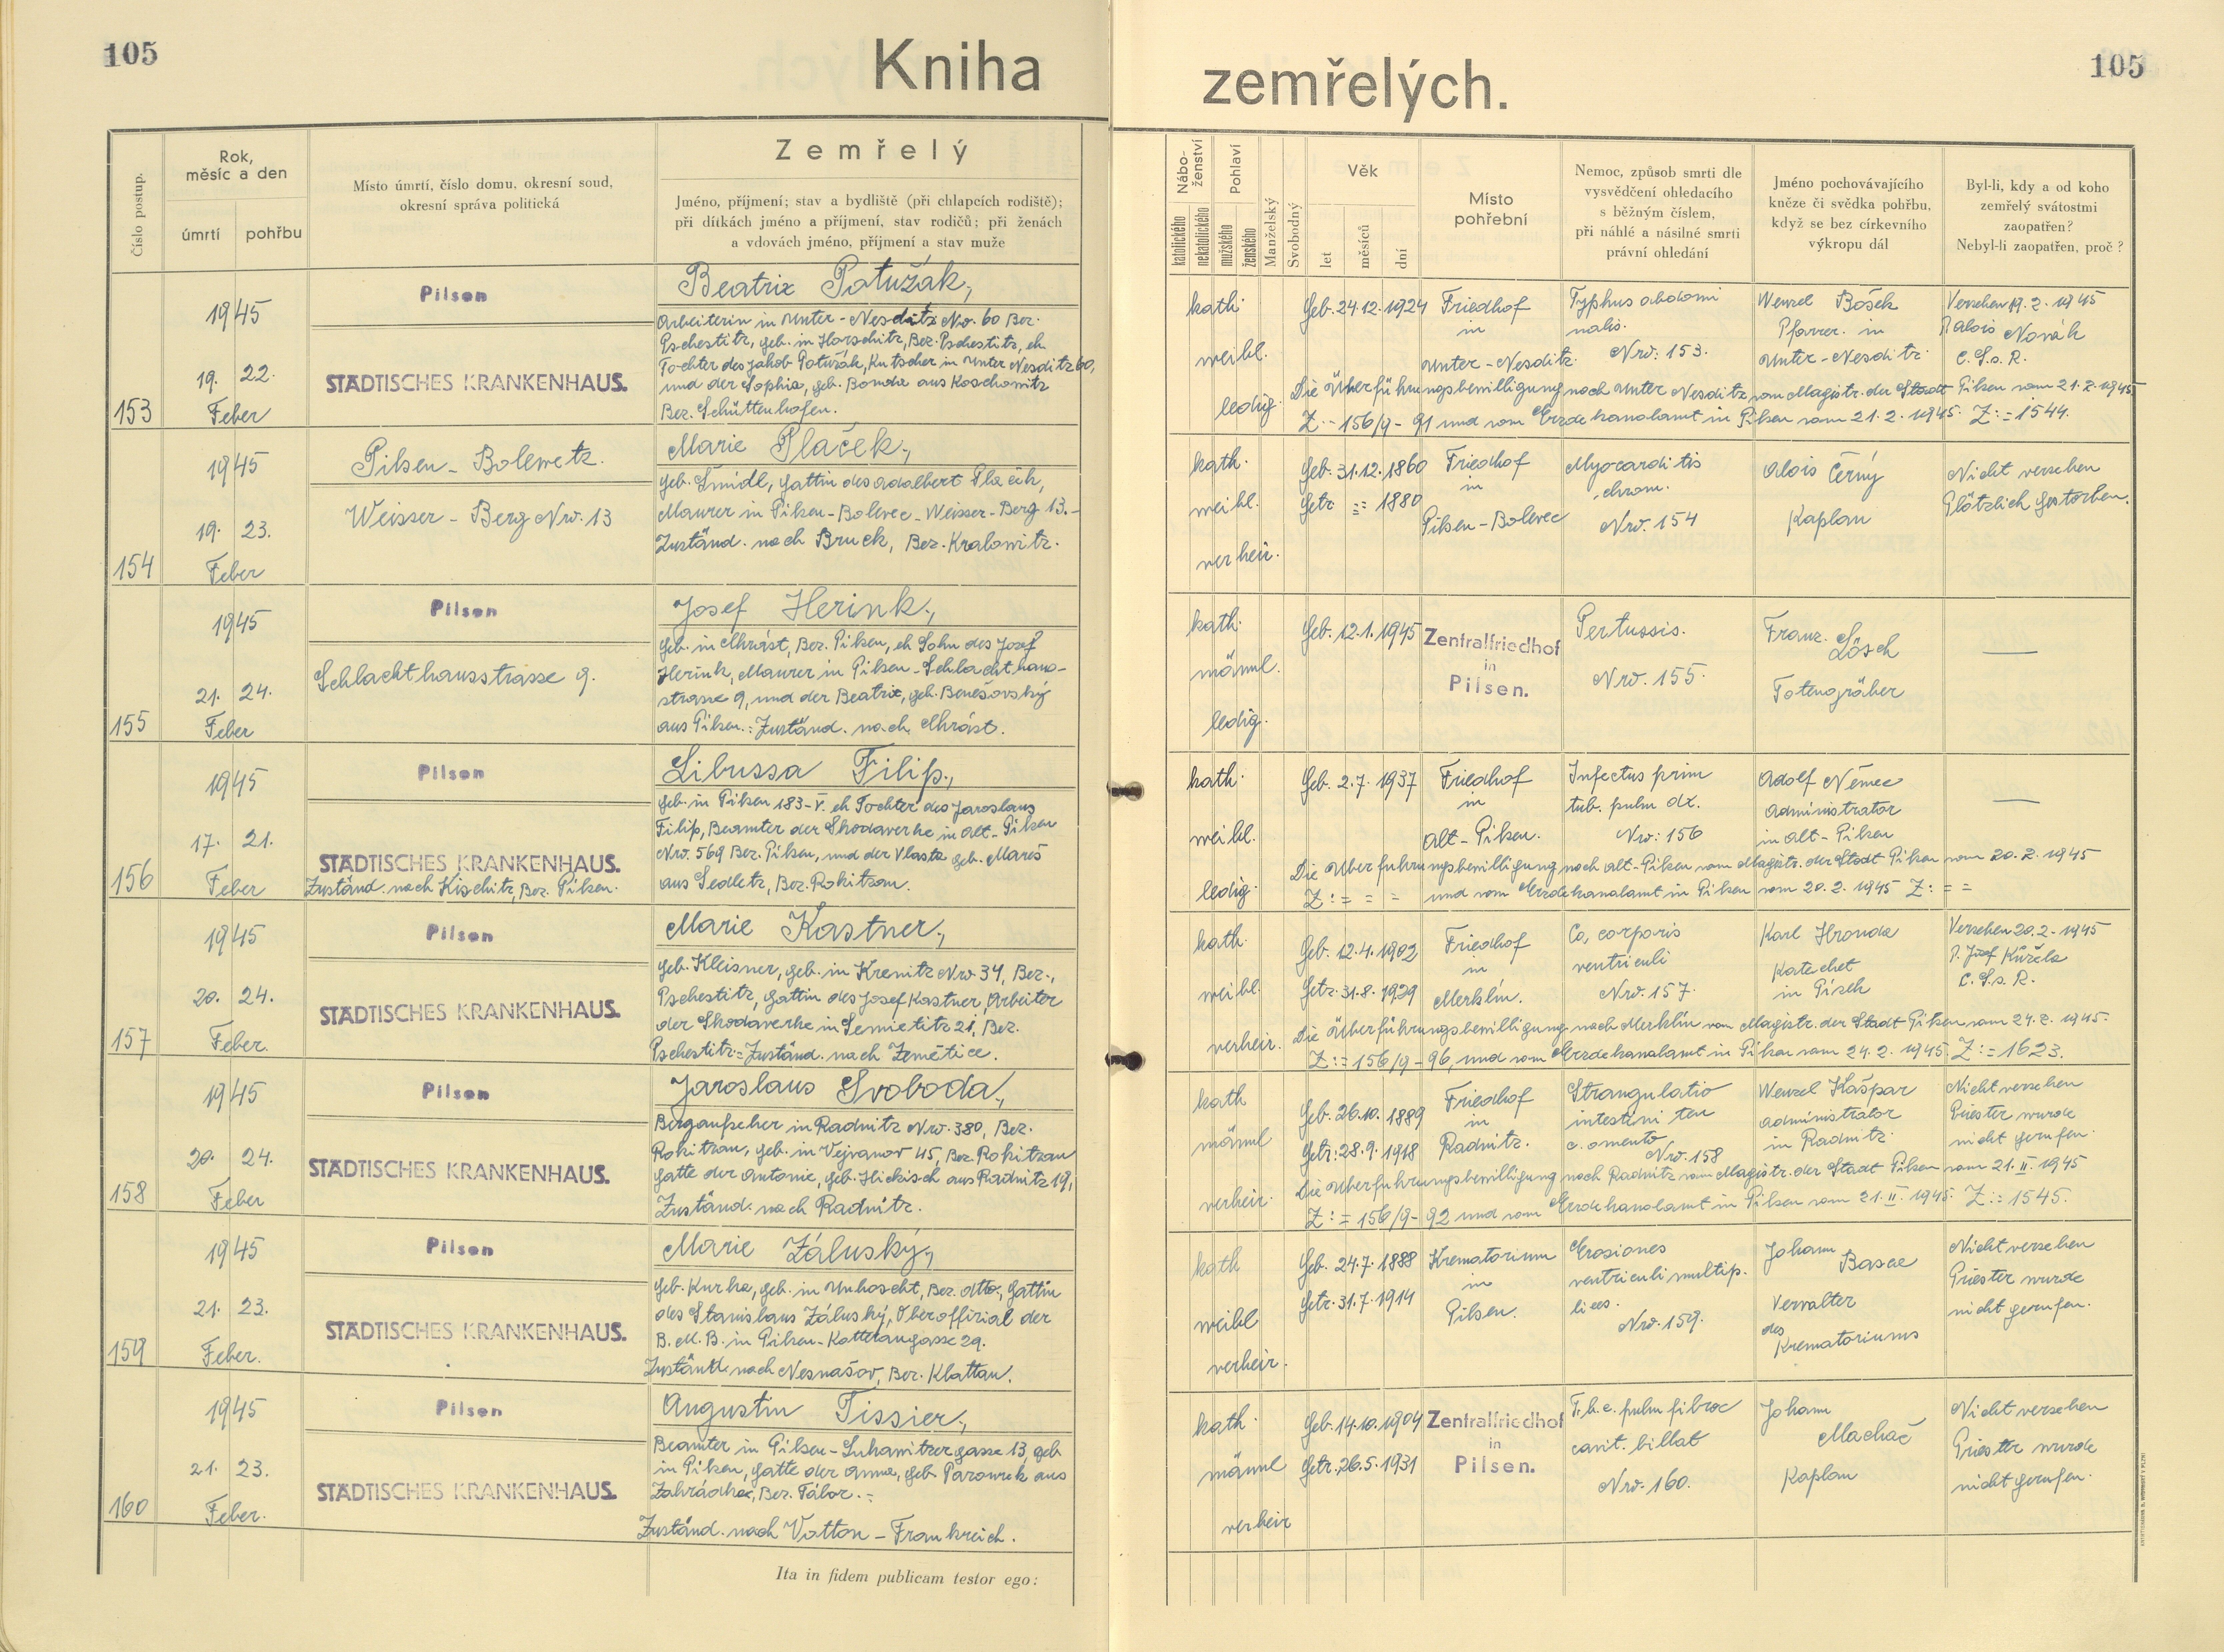 105
Kniha
zemřelých.
105
Číslo postup.
Rok,
měsíc a den
úmrtí
pohřbu
Místo úmrtí, číslo domu, okresní soud,
okresní správa politická
Zemřelý
Jméno, příjmení; stav a bydliště (při chlapcích rodiště);
při dítkách jméno a příjmení, stav rodičů; při ženách
a vdovách jméno, příjmení a stav muže
Nábo-
ženství
katolického
nekatolického
Pohlaví
mužského
ženského
Manželský
Svobodný
Věk
let
měsíců
dní
Místo
pohřební
Nemoc, způsob smrti dle
vysvědčení ohledacího
s běžným číslem,
při náhlé a násilné smrti
právní ohledání
Jméno pochovávajícího
kněze či svědka pohřbu,
když se bez církevního
výkropu dál
Byl-li, kdy a od koho
zemřelý svátostmi
zaopatřen?
Nebyl-li zaopatřen, proč?
153
1945
19. 22.
Feber
Pilsen
STÄDTISCHES KRANKENHAUS.
Beatrix Potužák,
Arbeiterin in Unter-Nesditz Nro. 60 Bez.
Pschestitz, geb. in Horschitz, Bez. Pschestitz, eh
Tochter des Jakob Potužák, Kutscher in Unter Nesditz 60,
und der Sophia, geb. Bonda aus Koschowitz
Bez. Schüttenhofen.
kath.
weibl.
ledig.
Geb. 24.12.1924
Friedhof
in
Unter-Nesditz.
Typhus abdomi
nalis.
Nro: 153.
Wenzel Bošek
Pfarrer in
Unter-Nesditz
Versehen 19.2.1945
P. Alois Novák
C. S. s. R.
Die Überführungsbewilligung nach Unter Nesditz vom Magistr. der Stadt Pilsen vom 21.2.1945
Z:- 156/9-91 und vom Erzdekanalamt in Pilsen vom 21.2.1945. Z:=1544.
154
1945
19. 23.
Feber
Pilsen-Bolewetz.
Weisser-Berg Nro. 13
Marie Plaček,
geb. Šmídl, Gattin des Adalbert Plaček,
Maurer in Pilsen-Bolevec-Weisser-Berg 13.-
Zuständ. nach Bruck, Bez. Kralowitz.
kath.
weibl.
verheir.
Geb. 31.12.1860
Getr == 1880
Friedhof
in
Pilsen-Bolevec
Myocarditis
chron.
Nro. 154
Alois Černý
Kaplan
Nicht versehen
Plötzlich gestorben.
155
1945
21. 24.
Feber
Pilsen
Schlachthausstrasse 9.
Josef Herink,
Geb. in Chrást, Bez. Pilsen, eh Sohn des Josef
Herink, Maurer in Pilsen-Schlachthaus-
strasse 9, und der Beatrix, geb. Benešovský
aus Pilsen.: Zuständ. nach Chrást.
kath.
männl.
ledig.
Geb. 12.1.1945
Zentralfriedhof
in
Pilsen.
Pertussis.
Nro. 155.
Franz Lösch
Totengräber
—
156
1945
17. 21.
Feber
Pilsen
STÄDTISCHES KRANKENHAUS.
Zuständ. nach Kischitz, Bez. Pilsen.
Libussa Filip,
Geb. in Pilsen 183-V. eh Tochter des Jaroslaus
Filip, Beamter der Skodawerke in Alt-Pilsen
Nro. 569 Bez. Pilsen, und der Vlasta geb. Mareš
aus Sedletz, Bez. Rokitzan.
kath.
weibl.
ledig.
Geb. 2.7.1937
Friedhof
in
Alt-Pilsen.
Infectus prim
tub. pulm dx.
Nro: 156
Adolf Němec
Administrator
in Alt-Pilsen
—
Die Überführungsbewilligung nach Alt-Pilsen vom Magistr. der Stadt Pilsen vom 20.2.1945
Z:= = = und vom Erzdekanalamt in Pilsen vom 20.2.1945 Z: = =
157
1945
20. 24.
Feber.
Pilsen
STÄDTISCHES KRANKENHAUS.
Marie Kastner,
geb. Kleisner, geb. in Krenitz Nro. 34, Bez.,
Pschestitz, Gattin des Josef Kastner, Arbeiter
der Skodawerke in Semietitz 21, Bez.
Pschestitz= Zuständ. nach Zemětice.
kath.
weibl.
verheir.
Geb. 12.4.1902
Getr. 31.8.1929
Friedhof
in
Merklín.
Ca, corporis
ventriculi
Nro. 157.
Karl Hronda
Katechet
in Písek
Versehen 20.2.1945
P. Josef Kužela
C. S. s. R.
Die Überführungsbewilligung nach Merklín vom Magistr. der Stadt Pilsen vom 24.2.1945.
Z:= 156/9-96, und vom Erzdekanalamt in Pilsen vom 24.2.1945 Z:=1623.
158
1945
20. 24.
Feber
Pilsen
STÄDTISCHES KRANKENHAUS.
Jaroslaus Svoboda,
Bergaufseher in Radnitz Nro. 380, Bez.
Rokitzan, geb. in Vejvanov 45, Bez. Rokitzan
Gatte der Antonie, geb. Hickisch aus Radnitz 19,
Zuständ. nach Radnitz.
kath
männl
verheir.
Geb. 26.10.1889
Getr: 28.9.1918
Friedhof
in
Radnitz.
Strangulatio
intestini ten
c. omento
Nro. 158
Wenzel Kašpar
Administrator
in Radnitz
Nicht versehen
Priester wurde
nicht gerufen.
Die Überführungsbewilligung nach Radnitz vom Magistr. der Stadt Pilsen vom 21.II.1945
Z:= 156/9-92 und vom Erzdekanalamt in Pilsen vom 21.II.1945. Z:=1545.
159
1945
21. 23.
Feber.
Pilsen
STÄDTISCHES KRANKENHAUS.
Marie Záluský,
geb. Kurka, geb. in Unhoscht, Bez. dtto., Gattin
des Stanislaus Záluský, Oberoffizial der
B. M. B. in Pilsen-Kotterangasse 29.
Zuständ. nach Nesnašov, Bez. Klattau.
kath
weibl
verheir.
Geb. 24.7.1888
Getr. 31.7.1914
Krematorium
in
Pilsen.
Erosiones
ventriculi multip.
lices.
Nro. 159.
Johann
Basae
Verwalter
des
Krematoriums
Nicht versehen
Priester wurde
nicht gerufen.
160
1945
21. 23.
Feber.
Pilsen
STÄDTISCHES KRANKENHAUS.
Augustin Tissier,
Beamter in Pilsen-Luhawitzergasse 13, geb.
in Pilsen, Gatte der Anna, geb. Parourek aus
Zahrádka, Bez. Tábor.=
Zuständ. nach Vatton-Frankreich.
kath.
männl
verheir
Geb. 14.10.1904
Getr. 26.5.1931
Zentralfriedhof
in
Pilsen.
T. b. c. pulm fibroc
cavit. billat
Nro. 160.
Johann
Machač
Kaplan
Nicht versehen
Priester wurde
nicht gerufen.
Ita in fidem publicam testor ego: